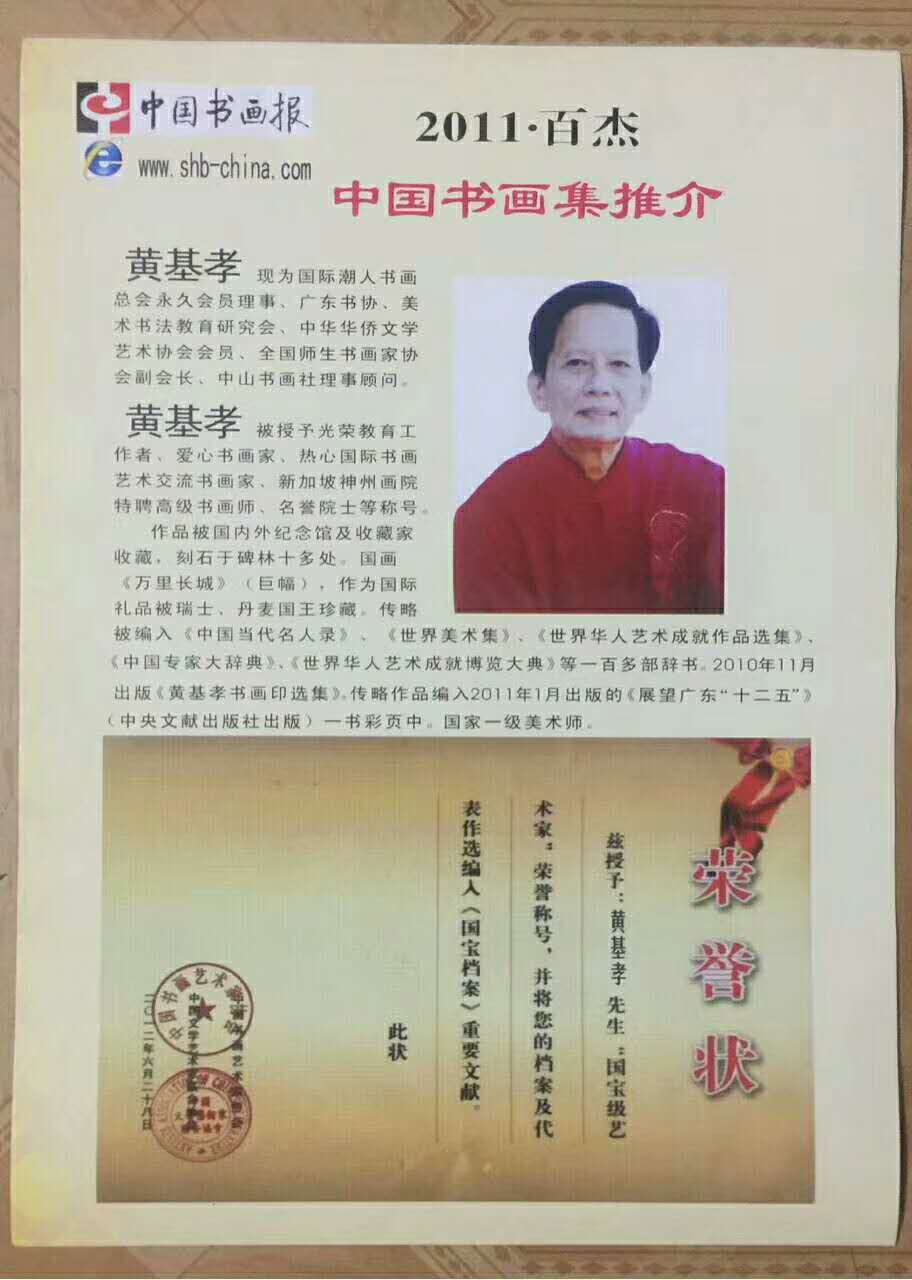 中国书画报
www.shb-china.com
2011·百杰
中国书画集推介
黄基孝 现为国际潮人书画
总会永久会员理事、广东书协、美
术书法教育研究会、中华华侨文学
艺术协会会员、全国师生书画家协
会副会长、中山书画社理事顾问。
黄基孝 被授予光荣教育工
作者、爱心书画家、热心国际书画
艺术交流书画家、新加坡神州画院
特聘高级书画师、名誉院士等称号。
作品被国内外纪念馆及收藏家
收藏，刻石于碑林十多处。国画
《万里长城》（巨幅），作为国际
礼品被瑞士、丹麦国王珍藏。传略
被编入《中国当代名人录》、《世界美术集》、《世界华人艺术成就作品选集》、
《中国专家大辞典》、《世界华人艺术成就博览大典》等一百多部辞书。2010年11月
出版《黄基孝书画印选集》。传略作品编入2011年1月出版的《展望广东“十二五”》
（中央文献出版社出版）一书彩页中。国家一级美术师。
荣誉状
兹授予：黄基孝 先生“国宝级艺
术家”荣誉称号，并将您的档案及代
表作选编入《国宝档案》重要文献。
此状
二〇一二年六月二十八日